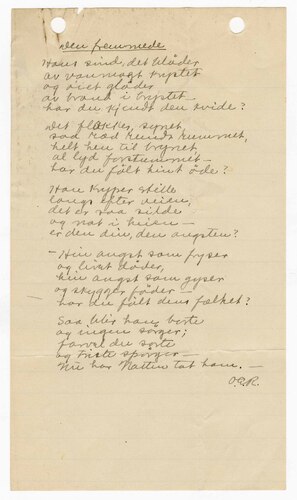 Den fremmede
Hans sind, det bløder
av vanmagt knyttet
og øiet gløder
av brand i brystet —
har du kjendt den kvide?
Det flakker, synet,
saa rød rummet,
helt hen til brynet
al lyd forstummet —
har du følt hint øde?
Han kryper stille
langs efter veien,
det er saa silde
og nat i heien —
er den din, den angsten?
— Hin angst som fryser
og livet døder,
hin angst som gyser
og skygger føder —
har du følt dens følket?
Saa blir han borte
og ingen sørger;
farvel du sorte
og triste spørger —
Nu har Natten tat ham. —
O.E.R.